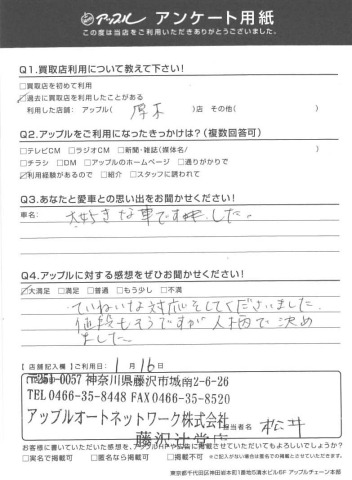 アップル アンケート用紙
この度は当店をご利用いただきありがとうございました。
Q1.買取店利用について教えて下さい!
□買取店を初めて利用
☑過去に買取店を利用したことがある
利用した店舗: アップル( 厚木 )店 その他( )
Q2.アップルをご利用になったきっかけは?(複数回答可)
□テレビCM □ラジオCM □新聞・雑誌(媒体名/ )
□チラシ □DM □アップルのホームページ □通りがかりで
☑利用経験があるので □紹介 □スタッフに誘われて
Q3.あなたと愛車との思い出をお聞かせください!
車名:
大好きな車でした。
Q4.アップルに対する感想をぜひお聞かせください!
☑大満足 □満足 □普通 □もう少し □不満
・ていねいな対応をしてくださいました。
値段もそうですが人柄で決め
ました。
【店舗記入欄】ご利用日: 1月16日
〒251-0057 神奈川県藤沢市城南2-6-26
TEL 0466-35-8448 FAX 0466-35-8520
アップルオートネットワーク株式会社
藤沢辻堂店
担当者名 松井
お客様に書いていただいた感想を、アップルHPや店舗に掲載させていただいてもよろしいでしょうか?
□実名で掲載可 □匿名なら掲載可 □掲載不可
※ご記入がない場合は匿名での掲載とさせていただきます。
東京都千代田区神田坂本町1番地5清水ビル6F アップルチェーン本部